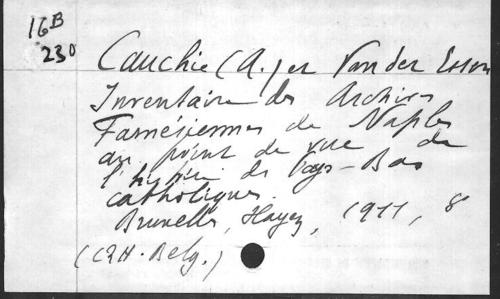 16B
230
Cauchie (A.) et Van der Essen
Inventaire des Archives
Farnésiennes de Naples
au point de vue de
l'histoire des Pays-Bas
catholiques.
Bruxelles, Hayez, 1911, 8°
(CRH. Belg.)